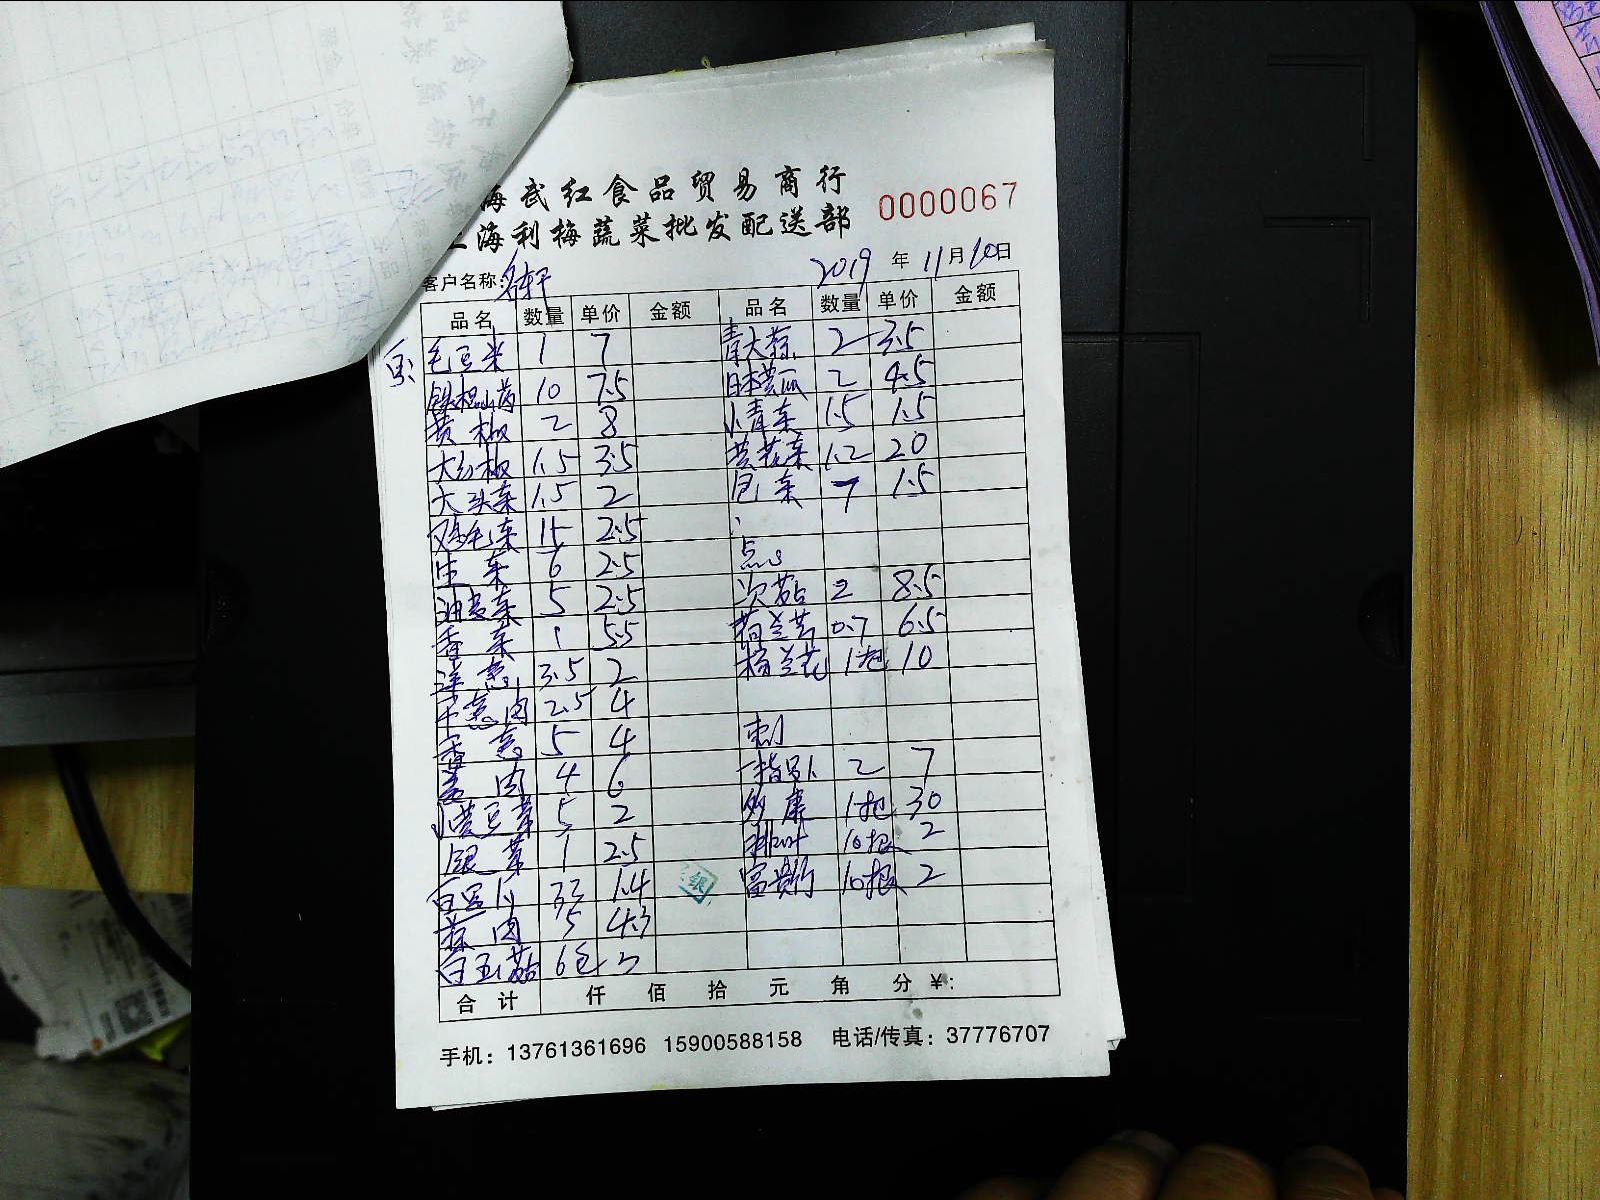 海武红食品贸易商行
上海利梅蔬菜批发配送部
0000067
客户名称: 名轩
2019 年 11 月 10 日
品名 数量 单价 金额 品名 数量 单价 金额
毛豆米 1 7 青大蒜 2 3.5
铁棍山药 10 7.5 日本黄瓜 2 4.5
黄椒 2 8 小青菜 1.5 1.5
大红椒 1.5 3.5 黄花菜 1.2 20
大头菜 1.5 2 包菜 7 1.5
鸡毛菜 15 2.5
生菜 6 2.5 点心
油麦菜 5 2.5 次菇 2 8.5
香菜 1 5.5 荷兰芹 0.7 6.5
洋葱 3.5 2 杨兰花 1包 10
京葱肉 2.5 4
香葱 5 4 刺
姜肉 4 6 指 2 7
小黄豆芽 5 2 1把 30
银芽 1 2.5 排叶 10根 2
白罗卜 33 1.4 富贵竹 10根 2
蒜肉 5 4.3
白玉菇 6包
合计 仟 佰 拾 元 角 分 ¥:
手机: 13761361696 15900588158 电话/传真: 37776707
银